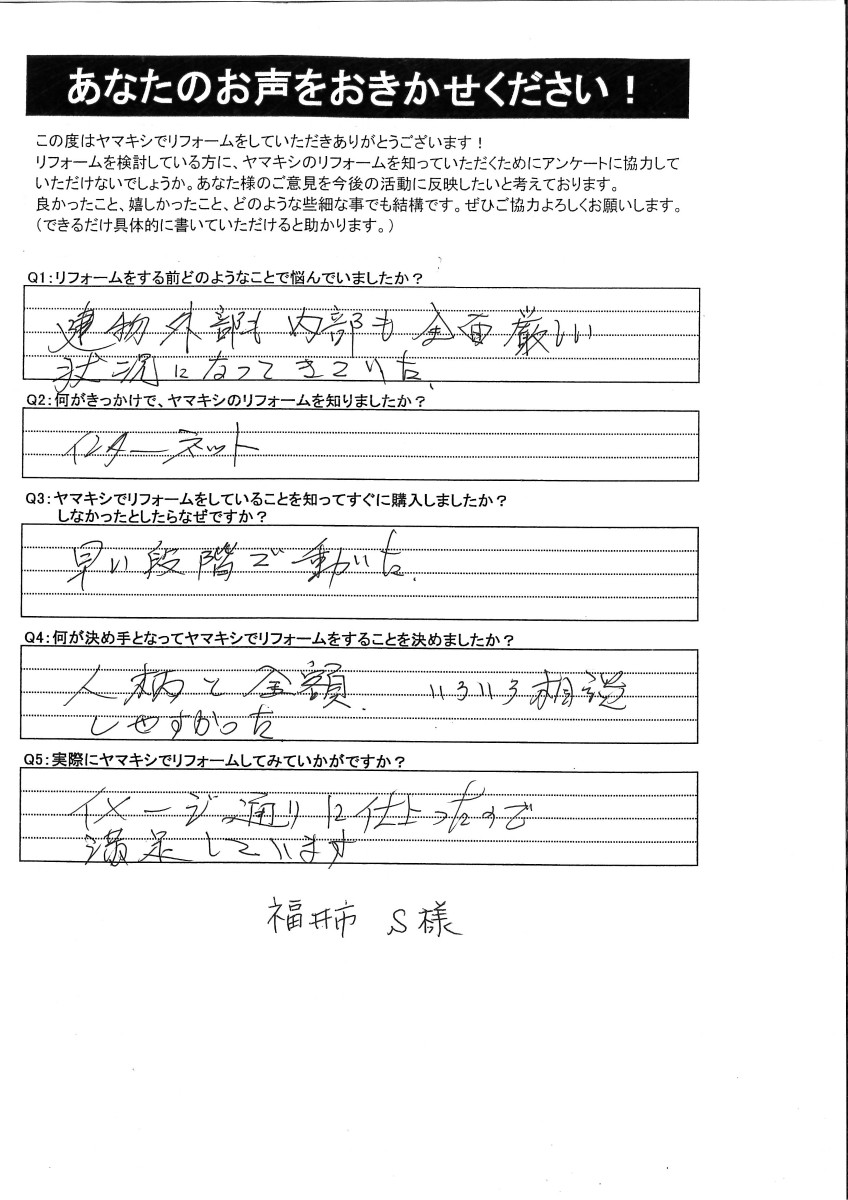 あなたのお声をおきかせください！
この度はヤマキシでリフォームをしていただきありがとうございます！
リフォームを検討している方に、ヤマキシのリフォームを知っていただくためにアンケートに協力して
いただけないでしょうか。あなた様のご意見を今後の活動に反映したいと考えております。
良かったこと、嬉しかったこと、どのような些細な事でも結構です。ぜひご協力よろしくお願いします。
（できるだけ具体的に書いていただけると助かります。）
Q1：リフォームをする前どのようなことで悩んでいましたか？
建物外部も内部も全面厳しい
状況になってきていた.
Q2：何がきっかけで、ヤマキシのリフォームを知りましたか？
インターネット
Q3：ヤマキシでリフォームをしていることを知ってすぐに購入しましたか？
しなかったとしたらなぜですか？
早い段階で動いた.
Q4：何が決め手となってヤマキシでリフォームをすることを決めましたか？
人柄と金額. いろいろ相談
しやすかった
Q5：実際にヤマキシでリフォームしてみていかがですか？
イメージ通りに仕上ったので
満足しています
福井市 S様